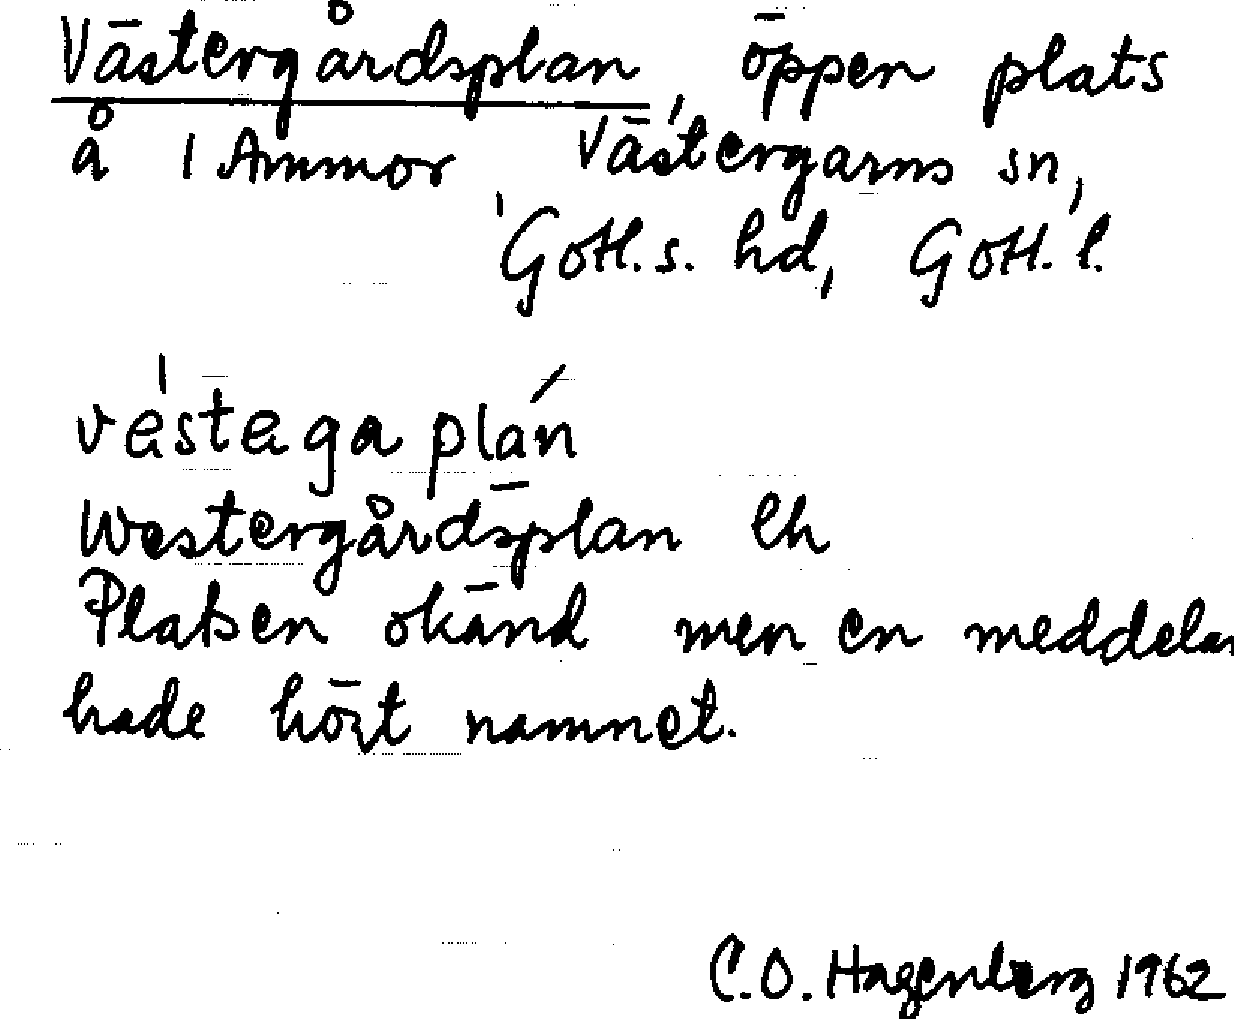 Västergårdsplan, öppen plats
å 1 Ammor Västergarns sn,
Gotl. s. hd, Gotl. l.
véstega plán
Westergårdsplan Eh
Platsen okänd men en meddelar
hade hört namnet.
C.O. Hagenberg 1962